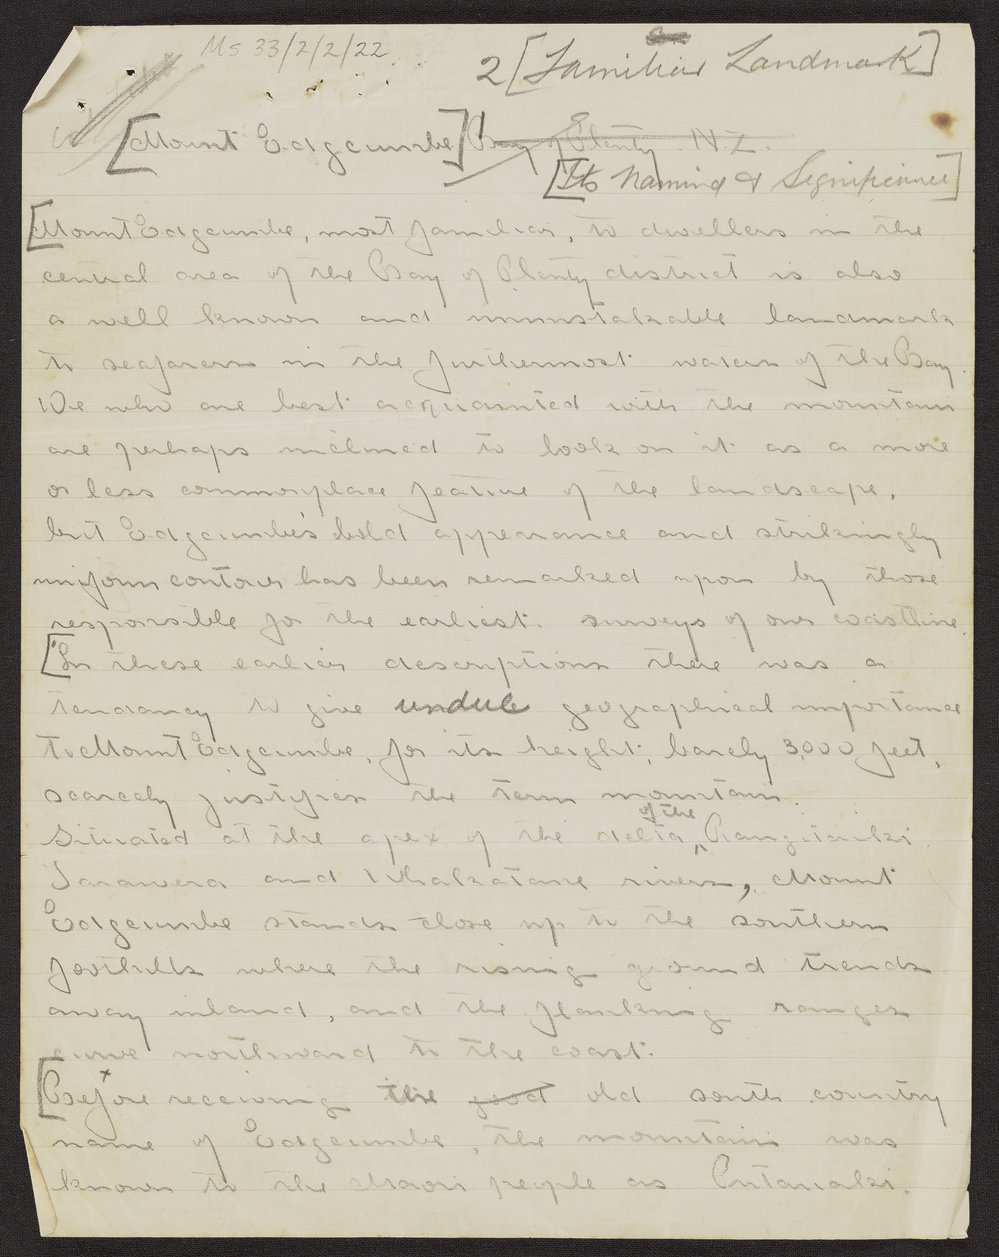 Ms 33/2/2/22
2 [Familiar Landmark]
[Mount Edgecumbe] Bay of Plenty. N.Z.
[Its Naming & Significance]
[Mount Edgcumbe, most familiar, to dwellers in the
central area of the Bay of Plenty district is also
a well known and unmistakable landmark
to seafarers in the furthermost waters of the Bay.
We who are best acquainted with the mountain
are perhaps inclined to look on it as a more
or less commonplace feature of the landscape,
but Edgcumbe's bold appearance and strikingly
uniform contour has been remarked upon by those
responsible for the earliest surveys of our coastline.
[In these earlier descriptions there was a
tendancy to give undue geographical importance
to Mount Edgcumbe, for its height, barely 3,000 feet,
scarcely justifies the term mountain.
Situated at the apex of the delta of the Rangitaiki
Tarawera and Whakatane rivers, Mount
Edgcumbe stands close up to the southern
foothills where the rising ground trends
away inland, and the flanking ranges
curve northward to the coast.
[Before receiving the good old south country
name of Edgcumbe, the mountain was
known to the Maori people as Putauaki.